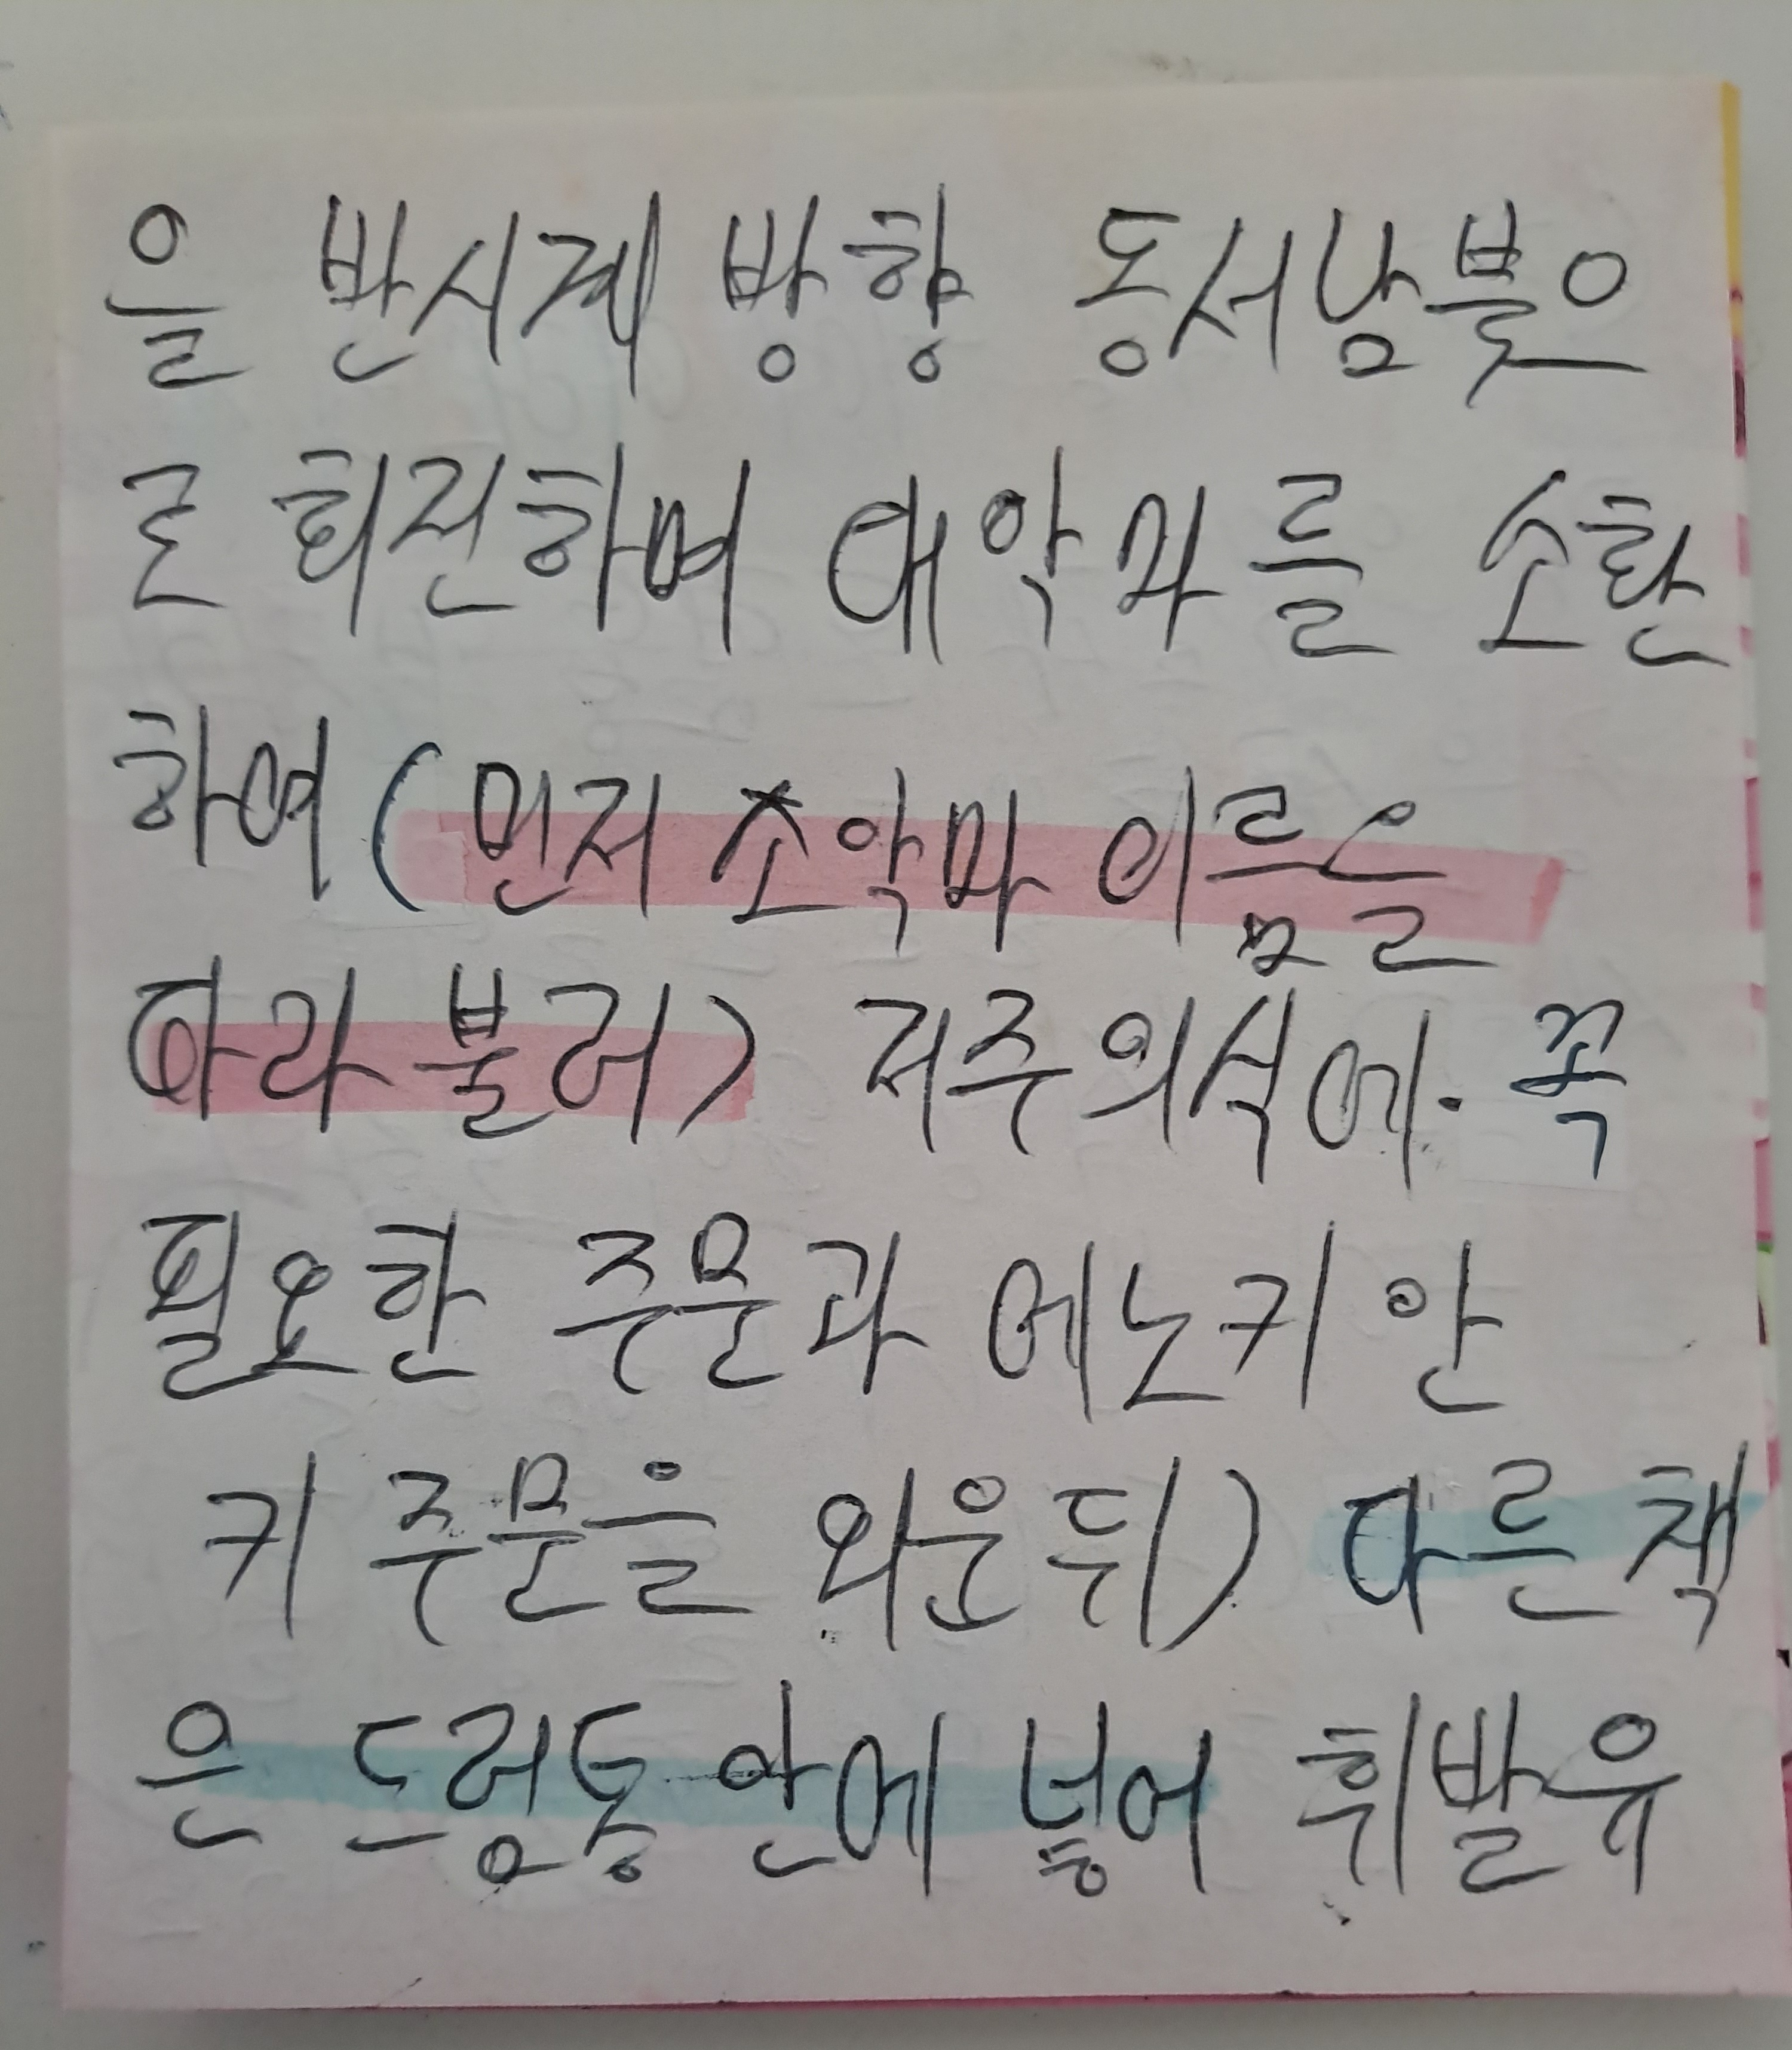 을 반시계 방향 동서남북으
로 회전하며 대악마를 소환
하여 (먼저 소악마 이름을
따라 불러) 저주의식에. 꼭
필요한 주문과 에노키 안
키 주문을 외운 뒤) 다른 책
은 드럼통 안에 넣어 휘발유